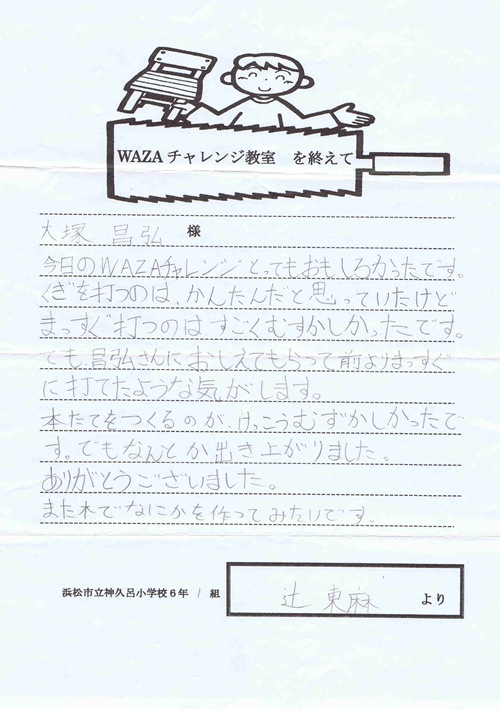 WAZAチャレンジ教室 を終えて
大塚 昌弘 様
今日のWAZAチャレンジとってもおもしろかったです。
くぎを打つのは、かんたんだと思っていたけど
まっすぐ打つのはすごくむずかしかったです。
でも、昌弘さんにおしえてもらって前よりまっすぐ
に打てたような気がします。
本たてをつくるのが、けっこうむずかしかったで
す。でもなんとか出き上がりました。
ありがとうございました。
また木でなにかを作ってみたいです。
浜松市立神久呂小学校6年 1 組
辻 東麻 より